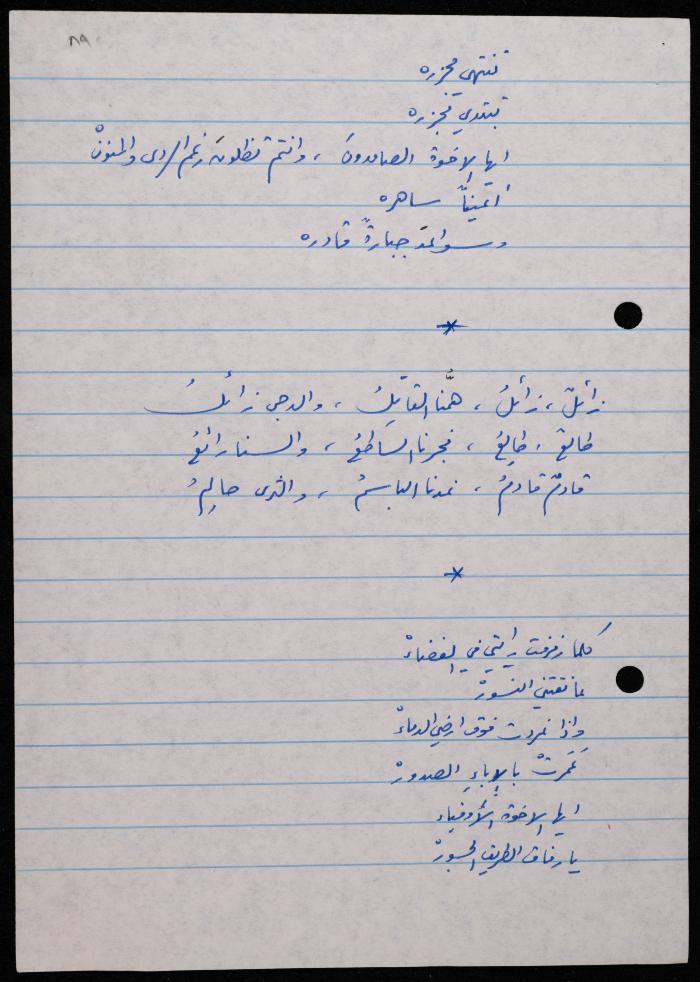 ٨٩
تنتهي مجزره
تبتدي مجزره
ايها الاخوة الصامدونَ ، وانتم تظلونَ رغم الردى والمنونْ
أعيناً ساهره
وسواعدَ جبارةً قادره
*
زائلٌ ، زائلُ ، همّنا القاتِلُ ، والدجى زائلُ
طالعٌ ، طالِعُ ، فجرنا الساطعُ ، والسنا رائعُ
قادمٌ قادمُ ، غدنا الباسمُ ، والثرى حالِمُ
*
كلما زفزفت رايتي في الفضاءْ
عانقتني النسورْ
وإذا غردت فوق ارضي الدماءْ
غَمرتْ بالإباءِ الصدورْ
ايها الاخوة الأوفياء
يا رفاق الطريق الجسورْ